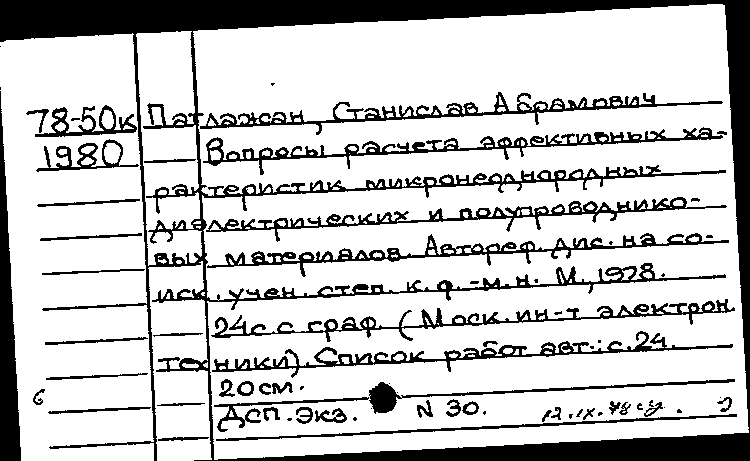 78-50к Патлажан, Станислав Абрамович
1980 Вопросы расчета эффективных ха-
рактеристик микронеоднородных
диэлектрических и полупроводнико-
вых материалов. Автореф. дис. на со-
иск. учен. степ. к.ф.-м.н. М., 1978.
24с. с граф. (Моск. ин-т электрон.
техники). Список работ авт.: с.24.
20см.
6 Дсп. Экз. N 30. 12.IX.78